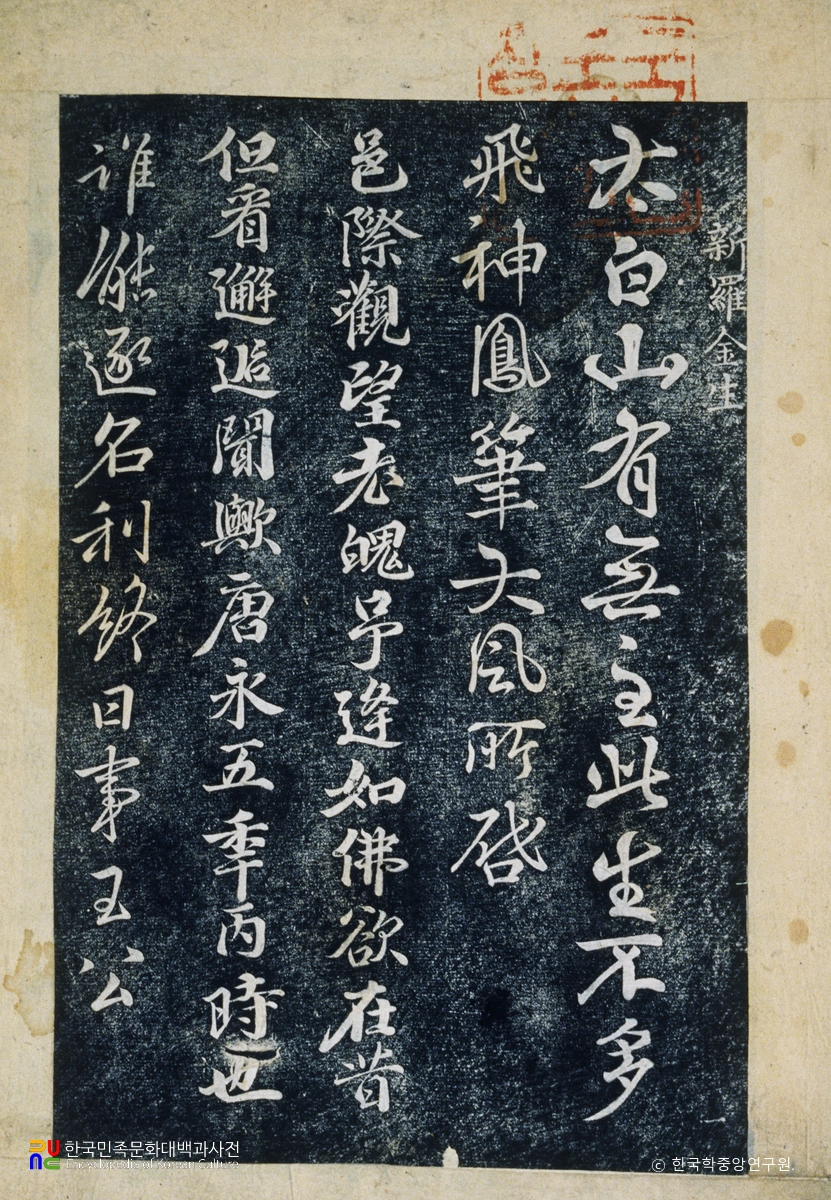 新羅金生
太白山有無主此生不多
飛神鳳筆大風所啓
邑際觀望老魄兮逢如佛欲在昔
但看邂逅聞歟唐永五季丙時也
誰能逐名利終日事王公
한국민족문화대백과사전
Encyclopedia of Korean Culture
ⓒ 한국학중앙연구원